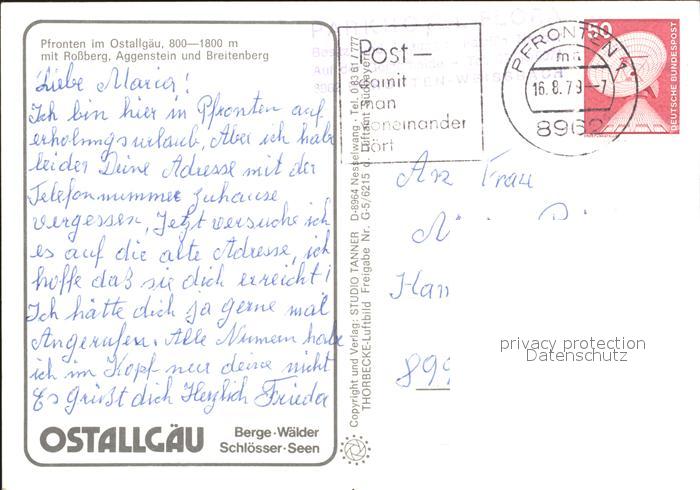 Pfronten im Ostallgäu, 800—1800 m
mit Roßberg, Aggenstein und Breitenberg
Liebe Maria!
Ich bin hier in Pfronten auf
erholungsurlaub, Aber ich habe
leider Deine Adresse mit der
Telefonnummer zuhause
vergessen, Jetzt versuche ich
es auf die alte Adresse, ich
hoffe daß sie dich erreicht!
Ich hätte dich ja gerne mal
Angerufen. Alle Numern habe
ich im Kopf nur deine nicht
Es grüßt dich Herzlich Frieda
OSTALLGÄU
Berge·Wälder
Schlösser·Seen
Copyright und Verlag: STUDIO TANNER D-8964 Nesselwang · Tel. 0 83 61 / 777
THORBECKE-Luftbild Freigabe Nr. G-5/6215 d. Luftamt Südbayern
Post—
damit
man
voneinander
hört
PFRONTEN
mn
16.8.79–7
8962
50
DEUTSCHE BUNDESPOST
An Frau
899
privacy protection
Datenschutz